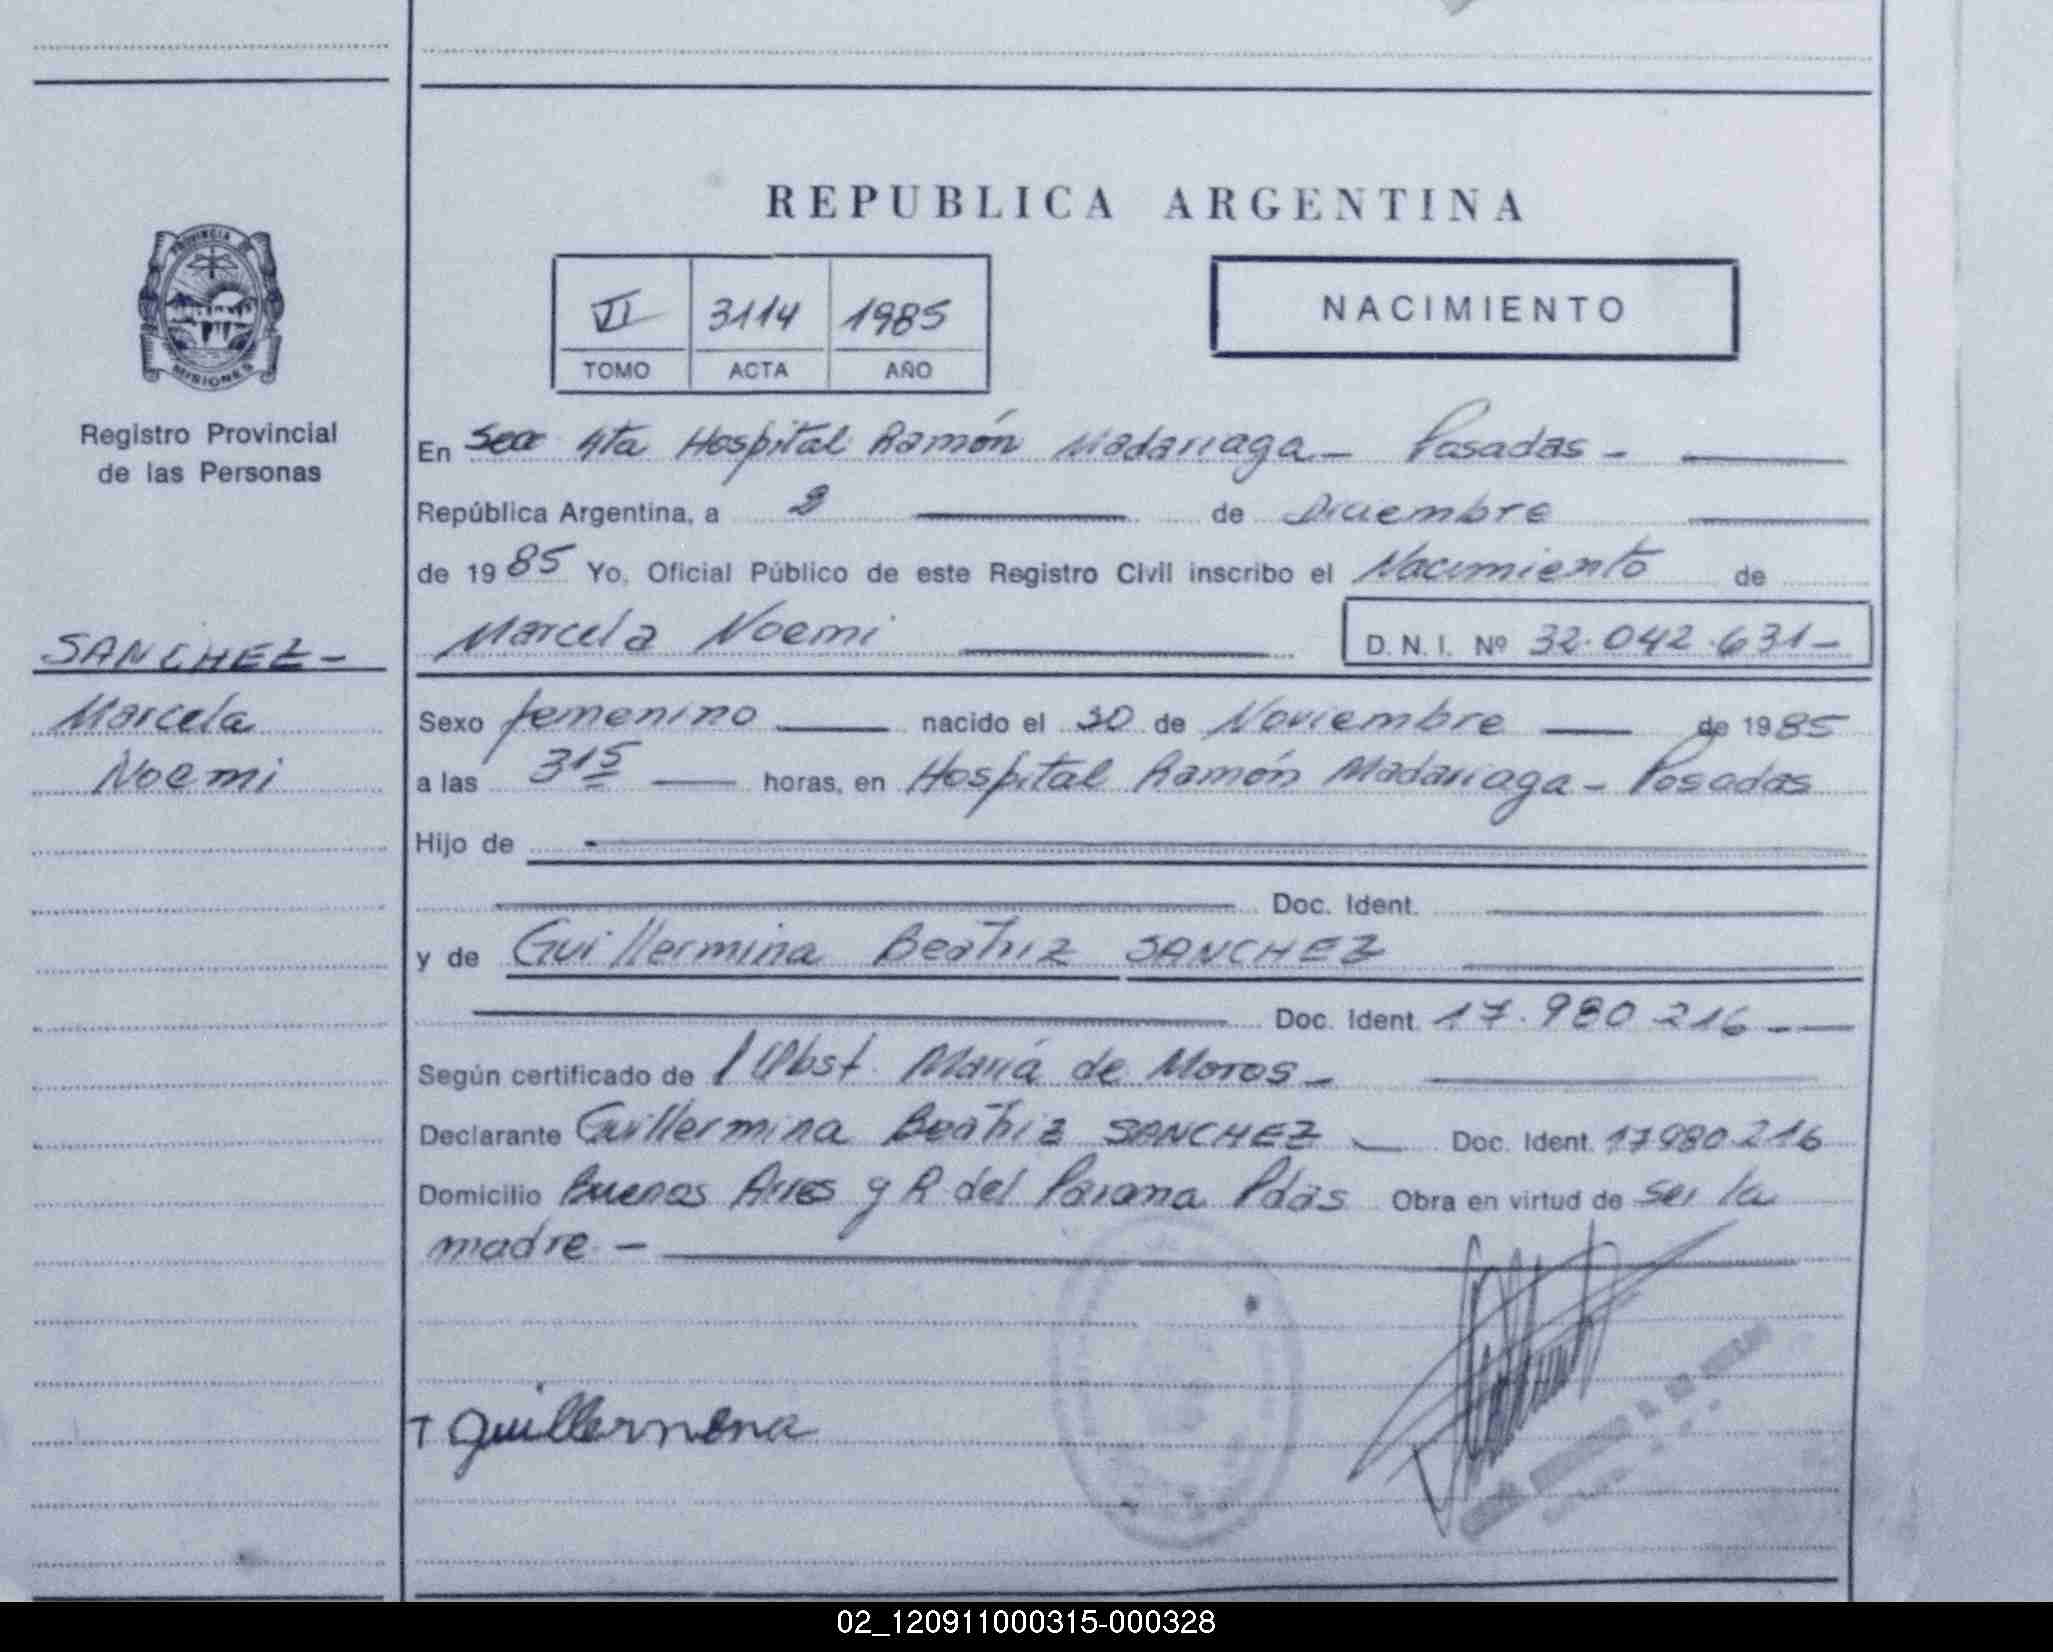 REPUBLICA ARGENTINA
PROVINCIA DE
MISIONES
Registro Provincial
de las Personas
SANCHEZ-
Marcela
Noemi
VI 3114 1985
TOMO ACTA AÑO
NACIMIENTO
En Secc 4ta Hospital Ramón Madariaga - Posadas -
República Argentina, a de Diciembre
de 1985 Yo, Oficial Público de este Registro Civil inscribo el Nacimiento de
Marcela Noemi D. N. I. Nº 32.042.631-
Sexo femenino nacido el 30 de Noviembre de 1985
a las 315 horas, en Hospital Ramón Madariaga - Posadas
Hijo de -
Doc. Ident.
y de Guillermina Beatriz SANCHEZ
Doc. Ident. 17.980 216 -
Según certificado de Obst. María de Moros -
Declarante Guillermina Beatriz SANCHEZ Doc. Ident. 17980.216
Domicilio Buenos Aires y R del Parana Pdas Obra en virtud de ser la
madre -
Guillermina
02_120911000315-000328